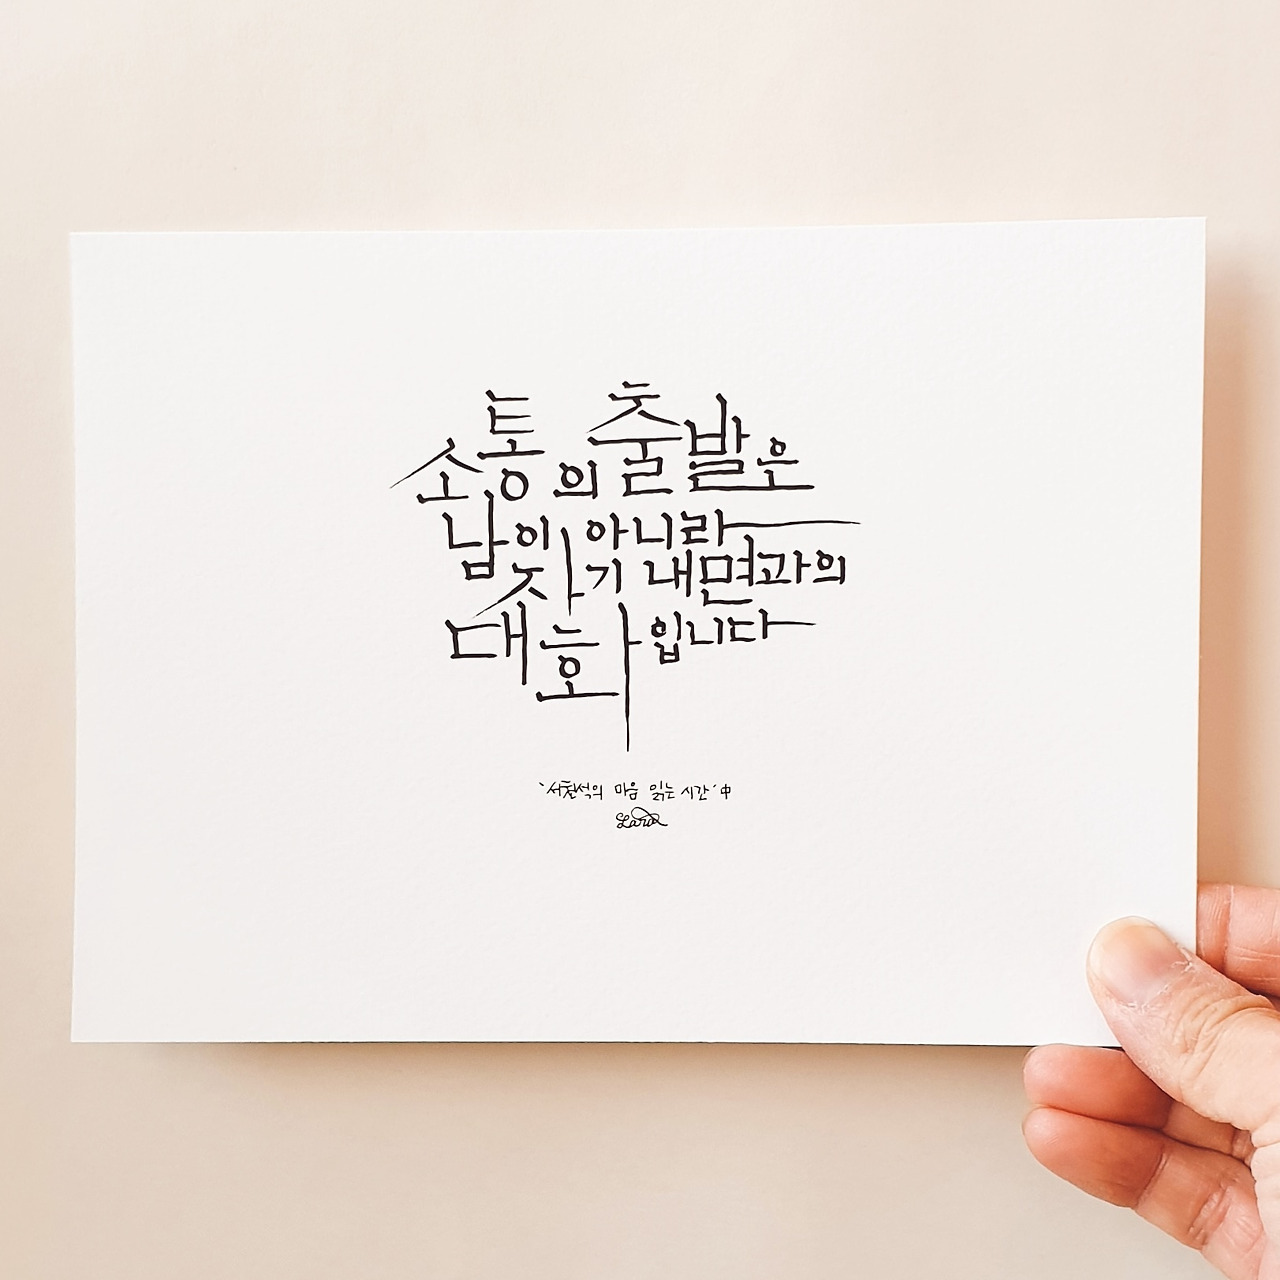 소통의 출발은
남이 아니라
자기 내면과의
대화입니다
'서천석의 마음 읽는 시간' 中
Lara